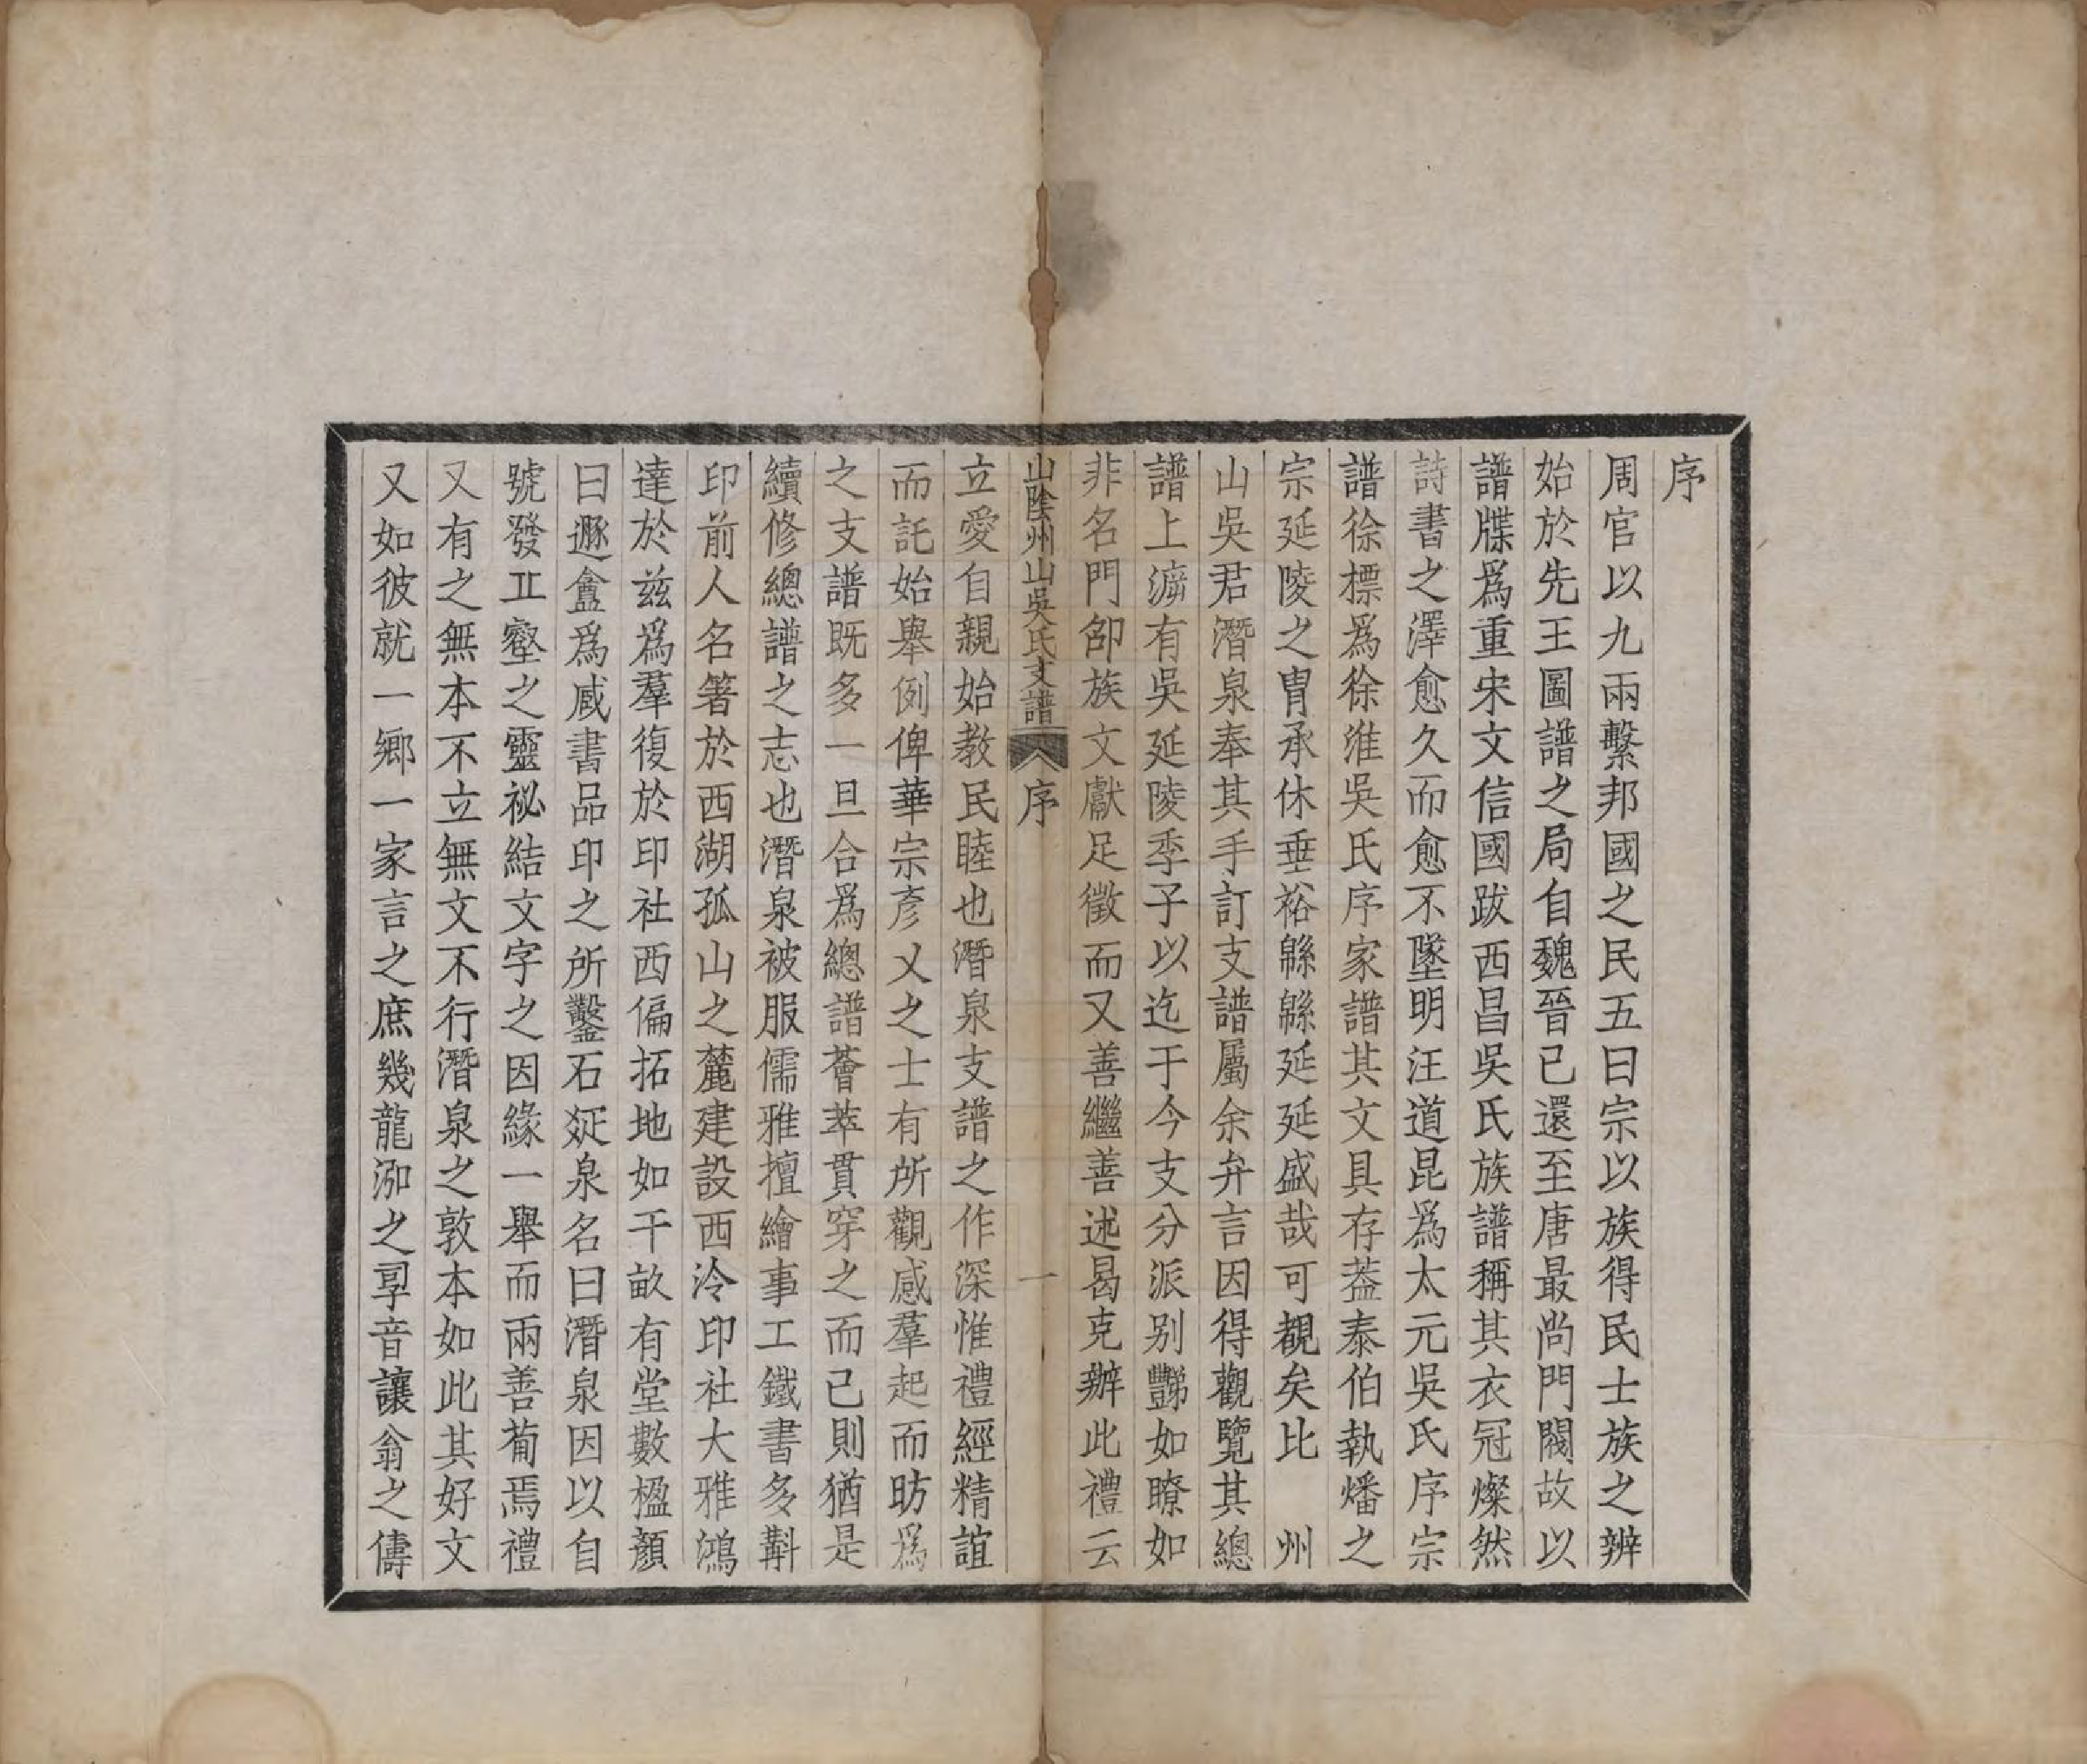 序
周官以九兩繫邦國之民五曰宗以族得民士族之辨
始於先王圖譜之局自魏晉已還至唐最尚門閥故以
譜牒爲重宋文信國跋西昌吳氏族譜稱其衣冠燦然
詩書之澤愈久而愈不墜明汪道昆爲太元吳氏序宗
譜徐標爲徐淮吳氏序家譜其文具存葢泰伯執燔之
宗延陵之胄承休垂裕緜緜延延盛哉可覩矣比　州
山吳君潛泉奉其手訂支譜屬余弁言因得觀覽其總
譜上泝有吳延陵季子以迄于今支分派别豒如瞭如
非名門卲族文獻足徵而又善繼善述曷克辦此禮云
山陰州山吳氏支譜　序　一
立愛自親始教民睦也潛泉支譜之作深惟禮經精誼
而託始舉例俾華宗彥乂之士有所觀感羣起而昉爲
之支譜既多一旦合爲總譜薈萃貫穿之而已則猶是
續修總譜之志也潛泉被服儒雅擅繪事工鐵書多斠
印前人名箸於西湖孤山之麓建設西泠印社大雅鴻
達於兹爲羣復於印社西偏拓地如干畝有堂數楹顏
曰遯盦爲臧書品印之所鑿石涎泉名曰潛泉因以自
號發丠壑之靈祕結文字之因緣一舉而兩善葡焉禮
又有之無本不立無文不行潛泉之敦本如此其好文
又如彼就一鄉一家言之庶幾龍泓之㝅音讓翁之儔